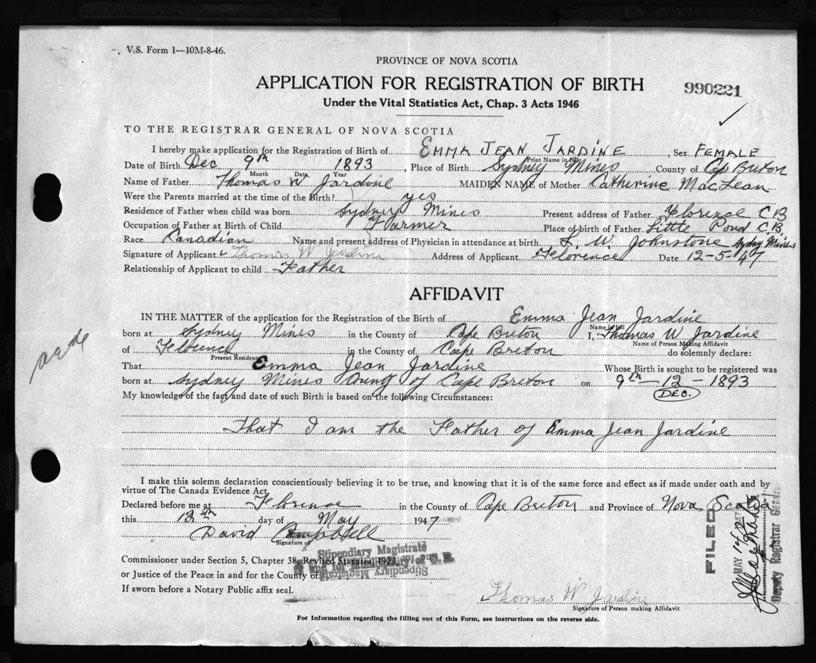 V.S. Form 1—10M-8-46.
PROVINCE OF NOVA SCOTIA
APPLICATION FOR REGISTRATION OF BIRTH
990221
Under the Vital Statistics Act, Chap. 3 Acts 1946
TO THE REGISTRAR GENERAL OF NOVA SCOTIA
I hereby make application for the Registration of Birth of EMMA JEAN JARDINE, Sex FEMALE
Print Name in Full
Date of Birth Dec 9th 1893, Place of Birth Sydney Mines County of Cape Breton
Month Date Year
Name of Father Thomas W Jardine MAIDEN NAME of Mother Catherine MacLean
Were the Parents married at the time of the Birth? yes
Residence of Father when child was born Sydney Mines Present address of Father Florence C.B
Occupation of Father at Birth of Child Farmer Place of birth of Father Little Pond C.B.
Race Canadian Name and present address of Physician in attendance at birth L. W. Johnstone Sydney Mines
Signature of Applicant Thomas W Jardine Address of Applicant Florence Date 12-5-47
Relationship of Applicant to child Father
AFFIDAVIT
IN THE MATTER of the application for the Registration of the Birth of Emma Jean Jardine
Name in full
born at Sydney Mines in the County of Cape Breton I, Thomas W Jardine
Name of Person Making Affidavit
of Florence in the County of Cape Breton do solemnly declare:
Present Residence
That Emma Jean Jardine Whose Birth is sought to be registered was
born at Sydney Mines County of Cape Breton on 9th-12-1893
(DEC.)
My knowledge of the fact and date of such Birth is based on the following Circumstances:
That I am the Father of Emma Jean Jardine
I make this solemn declaration conscientiously believing it to be true, and knowing that it is of the same force and effect as if made under oath and by
virtue of The Canada Evidence Act.
Declared before me at Florence in the County of Cape Breton and Province of Nova Scotia
this 13th day of May 1947
David Campbell
Signature of
Stipendiary Magistrate
Commissioner under Section 5, Chapter 38, Revised Statutes, 1923,
or Justice of the Peace in and for the County of
Stipendiary Magistrate
If sworn before a Notary Public affix seal.
Thomas W Jardine
Signature of Person making Affidavit
FILED
MAY 14 1947
Deputy Registrar General
For Information regarding the filling out of this Form, see instructions on the reverse side.